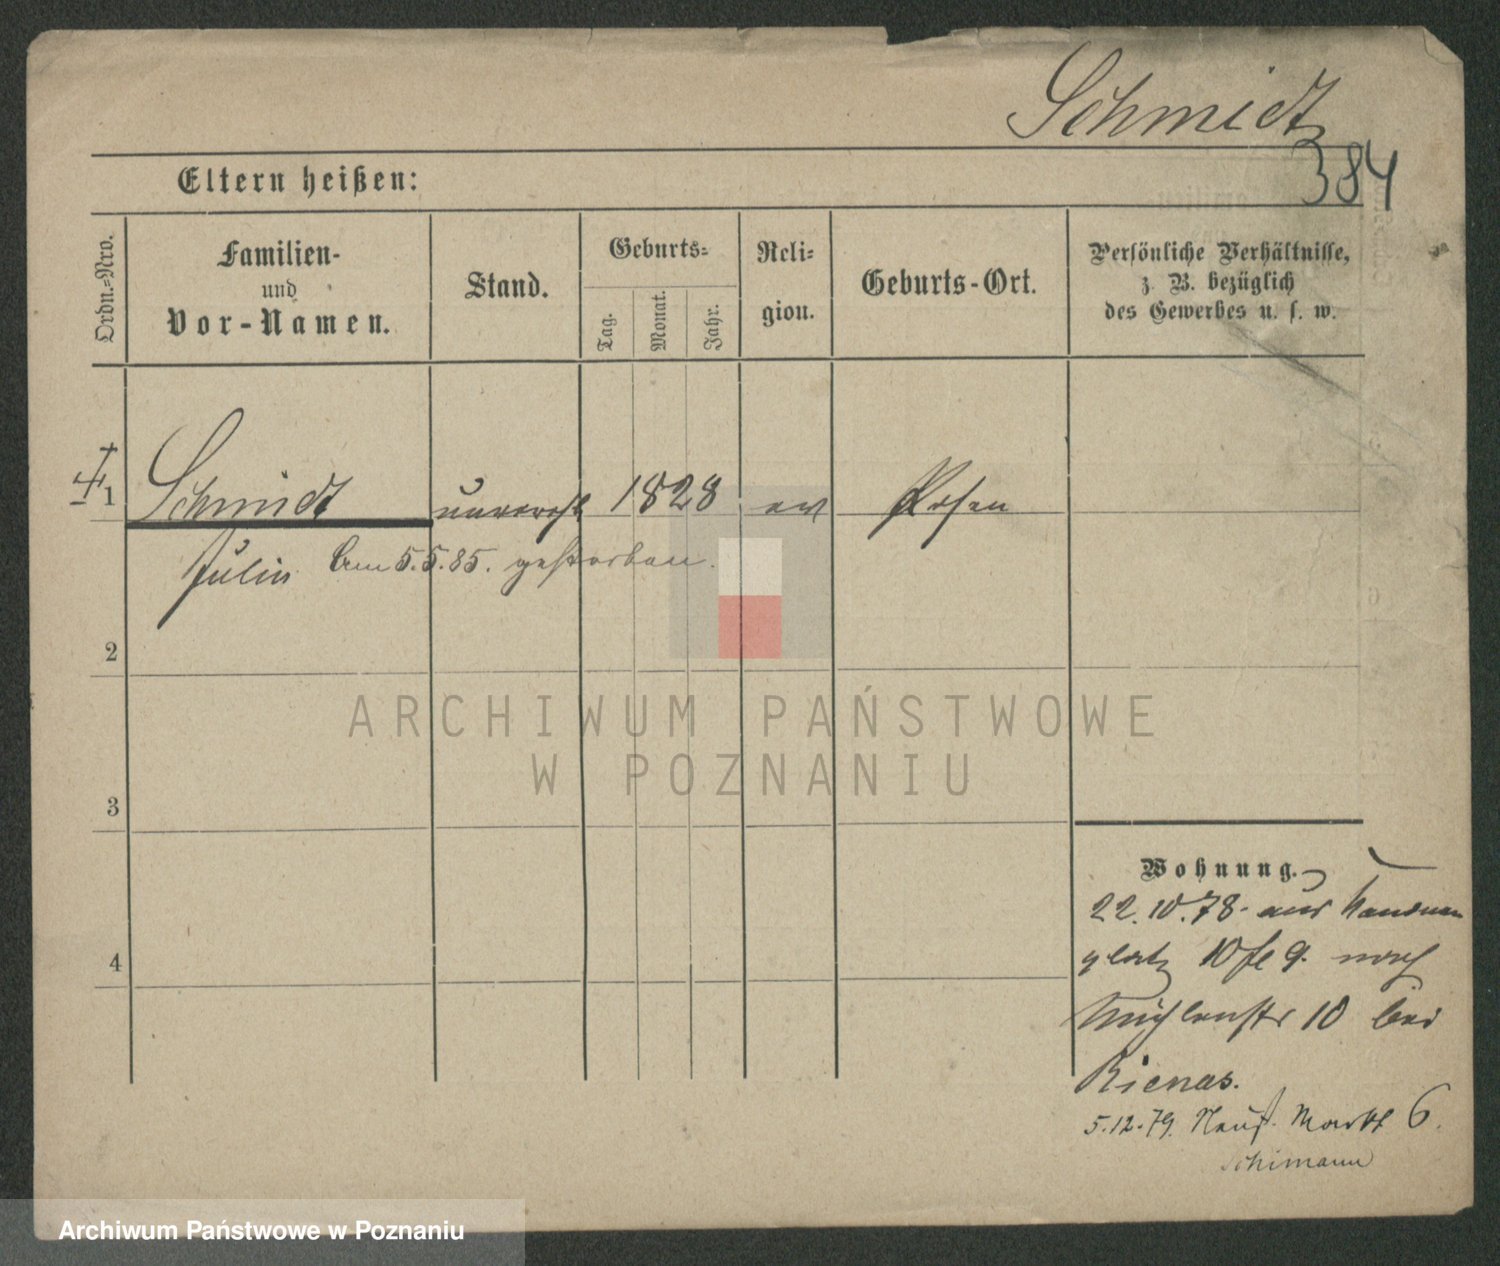 Schmidt
384
Eltern heißen:
Ordn.=Nro.
Familien-
und
Vor-Namen.
Stand.
Geburts=
Tag.
Monat.
Jahr.
Reli-
gion.
Geburts-Ort.
Persönliche Verhältnisse,
z. B. bezüglich
des Gewerbes u. s. w.
1 Schmidt unvereh 1828 ev Posen
Julie am 5.5.85. gestorben.
2
ARCHIWUM PAŃSTWOWE
W POZNANIU
3
4
Wohnung.
22.10.78. aus
platz 10 9. nach
Mühlenstr 10 bei
Rienas.
5.12.79. Neust. Markt 6.
Schimann
Archiwum Państwowe w Poznaniu